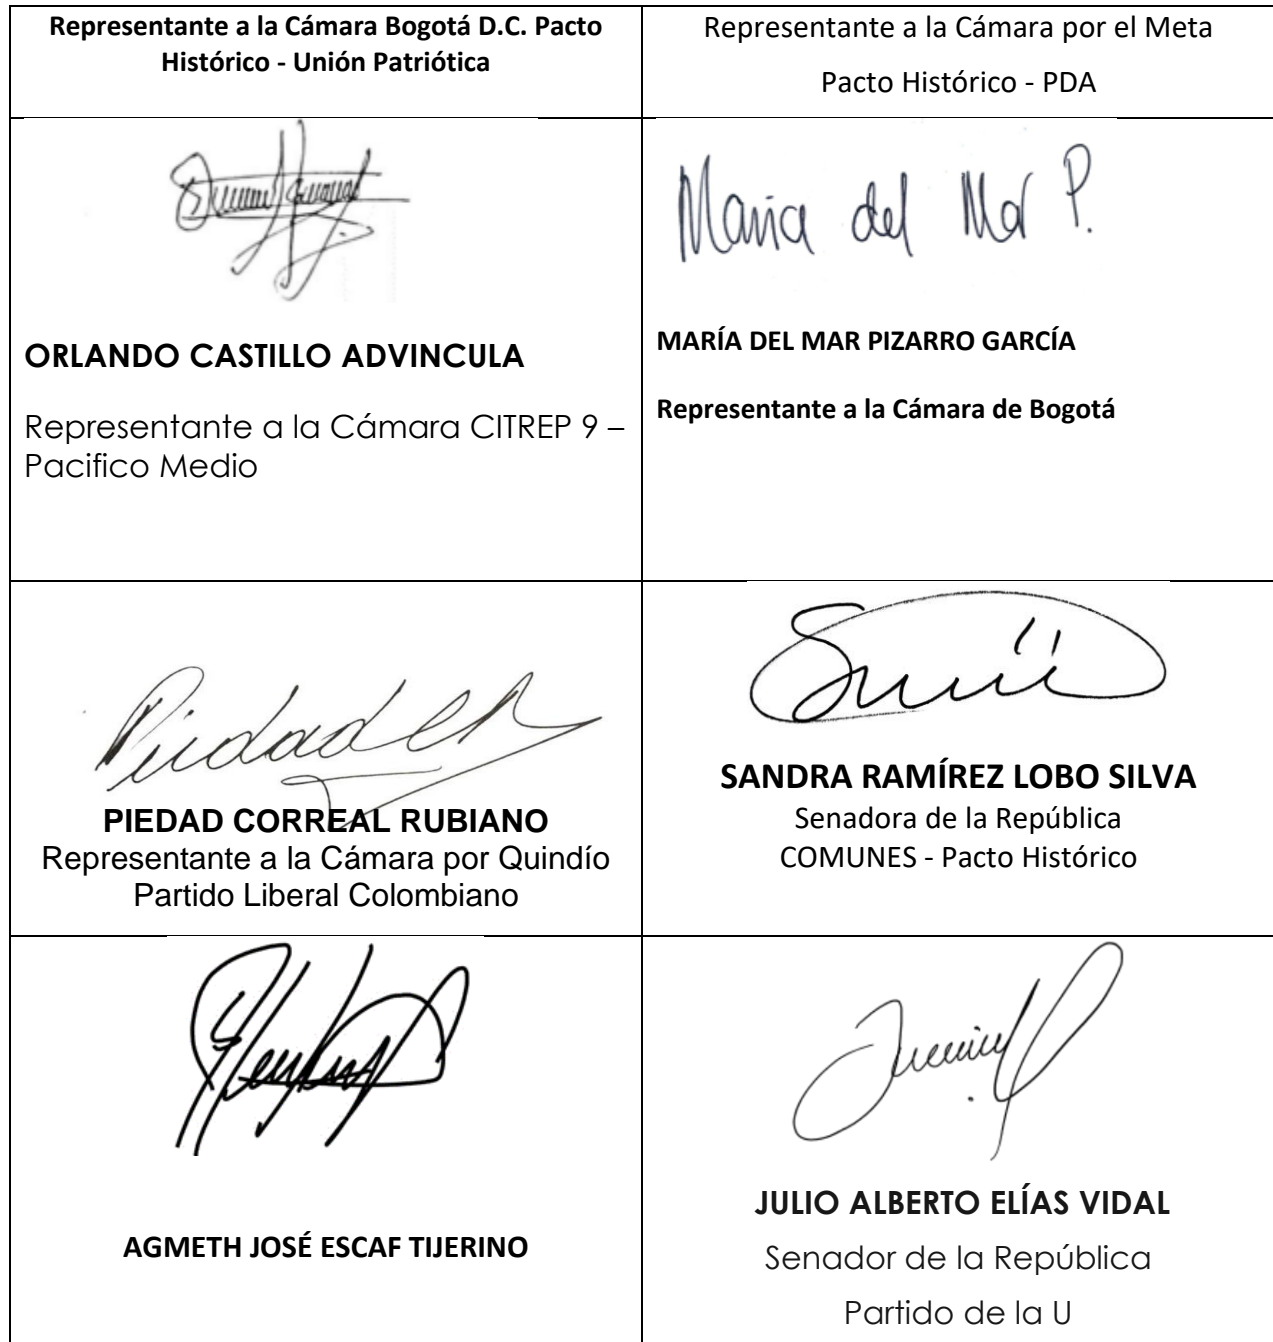 Representante a la Cámara Bogotá D.C. Pacto
Histórico - Unión Patriótica
Representante a la Cámara por el Meta
Pacto Histórico - PDA
ORLANDO CASTILLO ADVINCULA
Representante a la Cámara CITREP 9 –
Pacifico Medio
Maria del Mar P.
MARÍA DEL MAR PIZARRO GARCÍA
Representante a la Cámara de Bogotá
Piedad
PIEDAD CORREAL RUBIANO
Representante a la Cámara por Quindío
Partido Liberal Colombiano
SANDRA RAMÍREZ LOBO SILVA
Senadora de la República
COMUNES - Pacto Histórico
AGMETH JOSÉ ESCAF TIJERINO
JULIO ALBERTO ELÍAS VIDAL
Senador de la República
Partido de la U